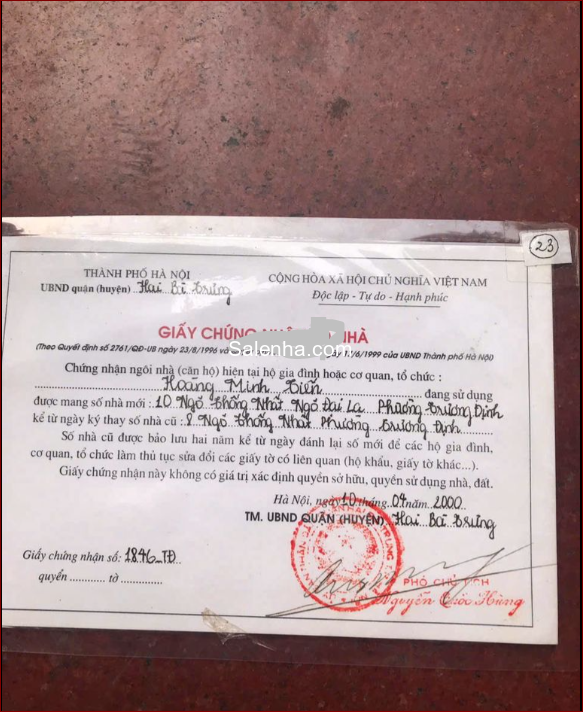 23
THÀNH PHỐ HÀ NỘI
UBND quận (huyện) Hai Bà Trưng
CỘNG HÒA XÃ HỘI CHỦ NGHĨA VIỆT NAM
Độc lập - Tự do - Hạnh phúc
GIẤY CHỨNG NHÀ
(Theo Quyết định số 2761/QĐ-UB ngày 23/8/1996 và /6/1999 của UBND Thành phố Hà Nội)
Salenha.com
Chứng nhận ngôi nhà (căn hộ) hiện tại hộ gia đình hoặc cơ quan, tổ chức :
Hoàng Minh đang sử dụng
được mang số nhà mới : 10 Ngõ Thống Nhất Ngõ Đại La Phường Trương Định
kể từ ngày ký thay số nhà cũ : 8 Ngõ Thống Nhất Phường Trương Định
Số nhà cũ được bảo lưu hai năm kể từ ngày đánh lại số mới để các hộ gia đình,
cơ quan, tổ chức làm thủ tục sửa đổi các giấy tờ có liên quan (hộ khẩu, giấy tờ khác...).
Giấy chứng nhận này không có giá trị xác định quyền sở hữu, quyền sử dụng nhà, đất.
Hà Nội, ngày 10 tháng 04 năm 2000
TM. UBND QUẬN (HUYỆN) Hai Bà Trưng
Giấy chứng nhận số: 1846-TĐ
quyển ............ tờ ............
PHÓ CHỦ TỊCH
Nguyễn Quốc Hùng